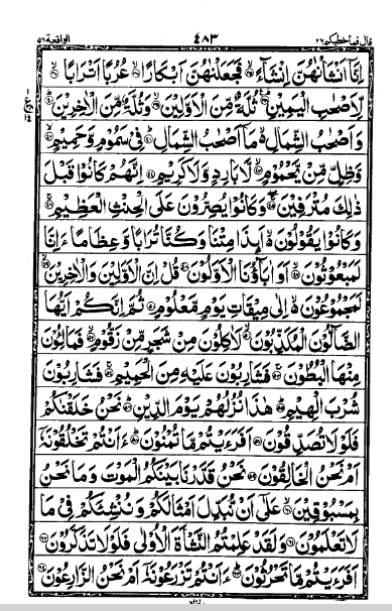 قال فما خطبکم ۲۷ ۴۸۳ الواقعة ۵۶
اِنَّاۤ اَنْشَاْنٰهُنَّ اِنْشَآءً ۙ فَجَعَلْنٰهُنَّ اَبْكَارًا ۙ عُرُبًا اَتْرَابًا ۙ
لِّاَصْحٰبِ الْيَمِيْنِ ؕ ثُلَّةٌ مِّنَ الْاَوَّلِيْنَ ۙ وَثُلَّةٌ مِّنَ الْاٰخِرِيْنَ ؕ
وَاَصْحٰبُ الشِّمَالِ ۙ مَاۤ اَصْحٰبُ الشِّمَالِ ؕ فِيْ سَمُوْمٍ وَّحَمِيْمٍ ۙ
وَّظِلٍّ مِّنْ يَّحْمُوْمٍ ۙ لَّا بَارِدٍ وَّلَا كَرِيْمٍ ۙ اِنَّهُمْ كَانُوْا قَبْلَ
ذٰلِكَ مُتْرَفِيْنَ ۚ وَكَانُوْا يُصِرُّوْنَ عَلَى الْحِنْثِ الْعَظِيْمِ ۚ
وَكَانُوْا يَقُوْلُوْنَ ۙ اَئِذَا مِتْنَا وَكُنَّا تُرَابًا وَّعِظَامًا ءَاِنَّا
لَمَبْعُوْثُوْنَ ۙ اَوَ اٰبَآؤُنَا الْاَوَّلُوْنَ ؕ قُلْ اِنَّ الْاَوَّلِيْنَ وَالْاٰخِرِيْنَ ۙ
لَمَجْمُوْعُوْنَ ۙ اِلٰى مِيْقَاتِ يَوْمٍ مَّعْلُوْمٍ ؕ ثُمَّ اِنَّكُمْ اَيُّهَا
الضَّآلُّوْنَ الْمُكَذِّبُوْنَ ۙ لَاٰكِلُوْنَ مِنْ شَجَرٍ مِّنْ زَقُّوْمٍ ۙ فَمَالِـُٔوْنَ
مِنْهَا الْبُطُوْنَ ۚ فَشٰرِبُوْنَ عَلَيْهِ مِنَ الْحَمِيْمِ ۚ فَشٰرِبُوْنَ
شُرْبَ الْهِيْمِ ؕ هٰذَا نُزُلُهُمْ يَوْمَ الدِّيْنِ ؕ نَحْنُ خَلَقْنٰكُمْ
فَلَوْلَا تُصَدِّقُوْنَ ۚ اَفَرَءَيْتُمْ مَّا تُمْنُوْنَ ؕ ءَاَنْتُمْ تَخْلُقُوْنَهٗۤ
اَمْ نَحْنُ الْخٰلِقُوْنَ ۚ نَحْنُ قَدَّرْنَا بَيْنَكُمُ الْمَوْتَ وَمَا نَحْنُ
بِمَسْبُوْقِيْنَ ۙ عَلٰۤى اَنْ نُّبَدِّلَ اَمْثَالَكُمْ وَنُنْشِئَكُمْ فِيْ مَا
لَا تَعْلَمُوْنَ ؕ وَلَقَدْ عَلِمْتُمُ النَّشْاَةَ الْاُوْلٰى فَلَوْلَا تَذَكَّرُوْنَ ؕ
اَفَرَءَيْتُمْ مَّا تَحْرُثُوْنَ ؕ ءَاَنْتُمْ تَزْرَعُوْنَهٗۤ اَمْ نَحْنُ الزّٰرِعُوْنَ